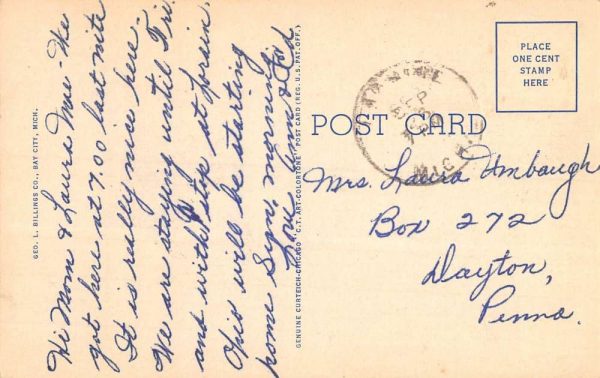 Hi Mom & Laura Mae - We
got here at 7.00 last nite
It is really nice here.
We are staying until Fri.
and will stop at
Ohio will be starting
home morning
Love Ann &
GEO. L. BILLINGS CO., BAY CITY, MICH.
GENUINE CURTEICH-CHICAGO "C.T. ART-COLORTONE" POST CARD (REG. U.S. PAT. OFF.)
PLACE
ONE CENT
STAMP
HERE
POST CARD
MICH.
Mrs. Laura Umbaugh
Box 272
Dayton,
Penna.